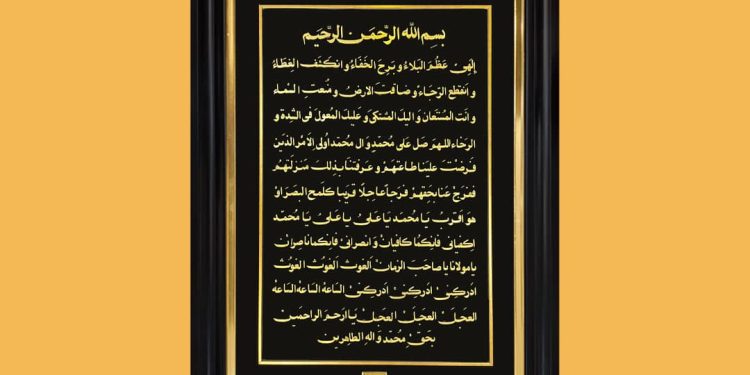 بسم الله الرحمن الرحیم
اِلٰهی عَظُمَ البَلاءُ و بَرِحَ الخَفاءُ و انکَشَفَ الغِطاءُ
و انقَطع الرّجاءُ و ضاقت الارضُ و مُنعتِ السّماء
و انت المُستَعان و الیک المُشتکی و علیک المُعول فی الشّدة و
الرخاء اللهم صل علی محمد و ال محمد اولی الامر الذین
فرضت علینا طاعتهم و عرفتنا بذلک منزلتهم
ففرج عنا بحقهم فرجا عاجلا قریبا کلمح البصر او
هو اقرب یا محمد یا علی یا علی یا محمد
اکفیانی فانکما کافیان و انصرانی فانکما ناصران
یا مولانا یا صاحب الزمان الغوث الغوث الغوث
ادرکنی ادرکنی ادرکنی الساعة الساعة الساعة
العجل العجل العجل یا ارحم الراحمین
بحق محمد و اله الطاهرین